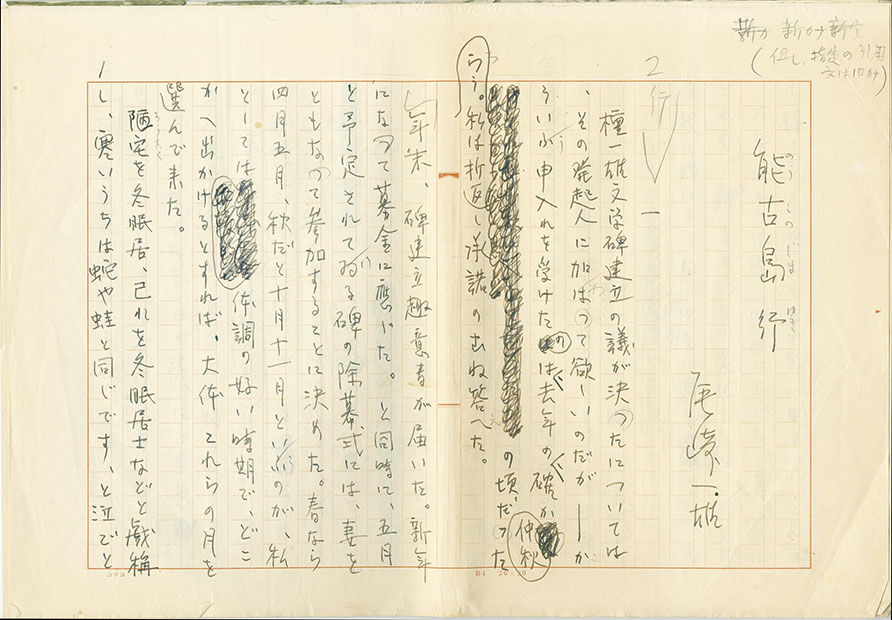 新カ 新かナ 新字
(但し、指定の引用
文は旧カナ)
能古島行
のこのしまゆき
尾崎一雄
2行
一
檀一雄文学碑建立の議が決つたについては
、その発起人に加はつて欲しいのだが――か
ういふ申入れを受けたのは去年の確か仲秋
の頃だつた
らう。私は折返し承諾のむね答へた。
年末、碑建立趣意書が届いた。新年
になつて募金に應じた。と同時に、五月
と予定されてゐる碑の除幕式には、妻を
ともなつて参加することに決めた。春なら
四月五月、秋だと十月十一月といふのが、私
としては体調の好い時期で、どこ
かへ出かけるとすれば、大体これらの月を
選んで来た。
陋宅を冬眠居、己れを冬眠居士などと戯称
ろうたく
し、寒いうちは蛇や蛙と同じです、と泣でと
1
B4 20×20
コクヨ